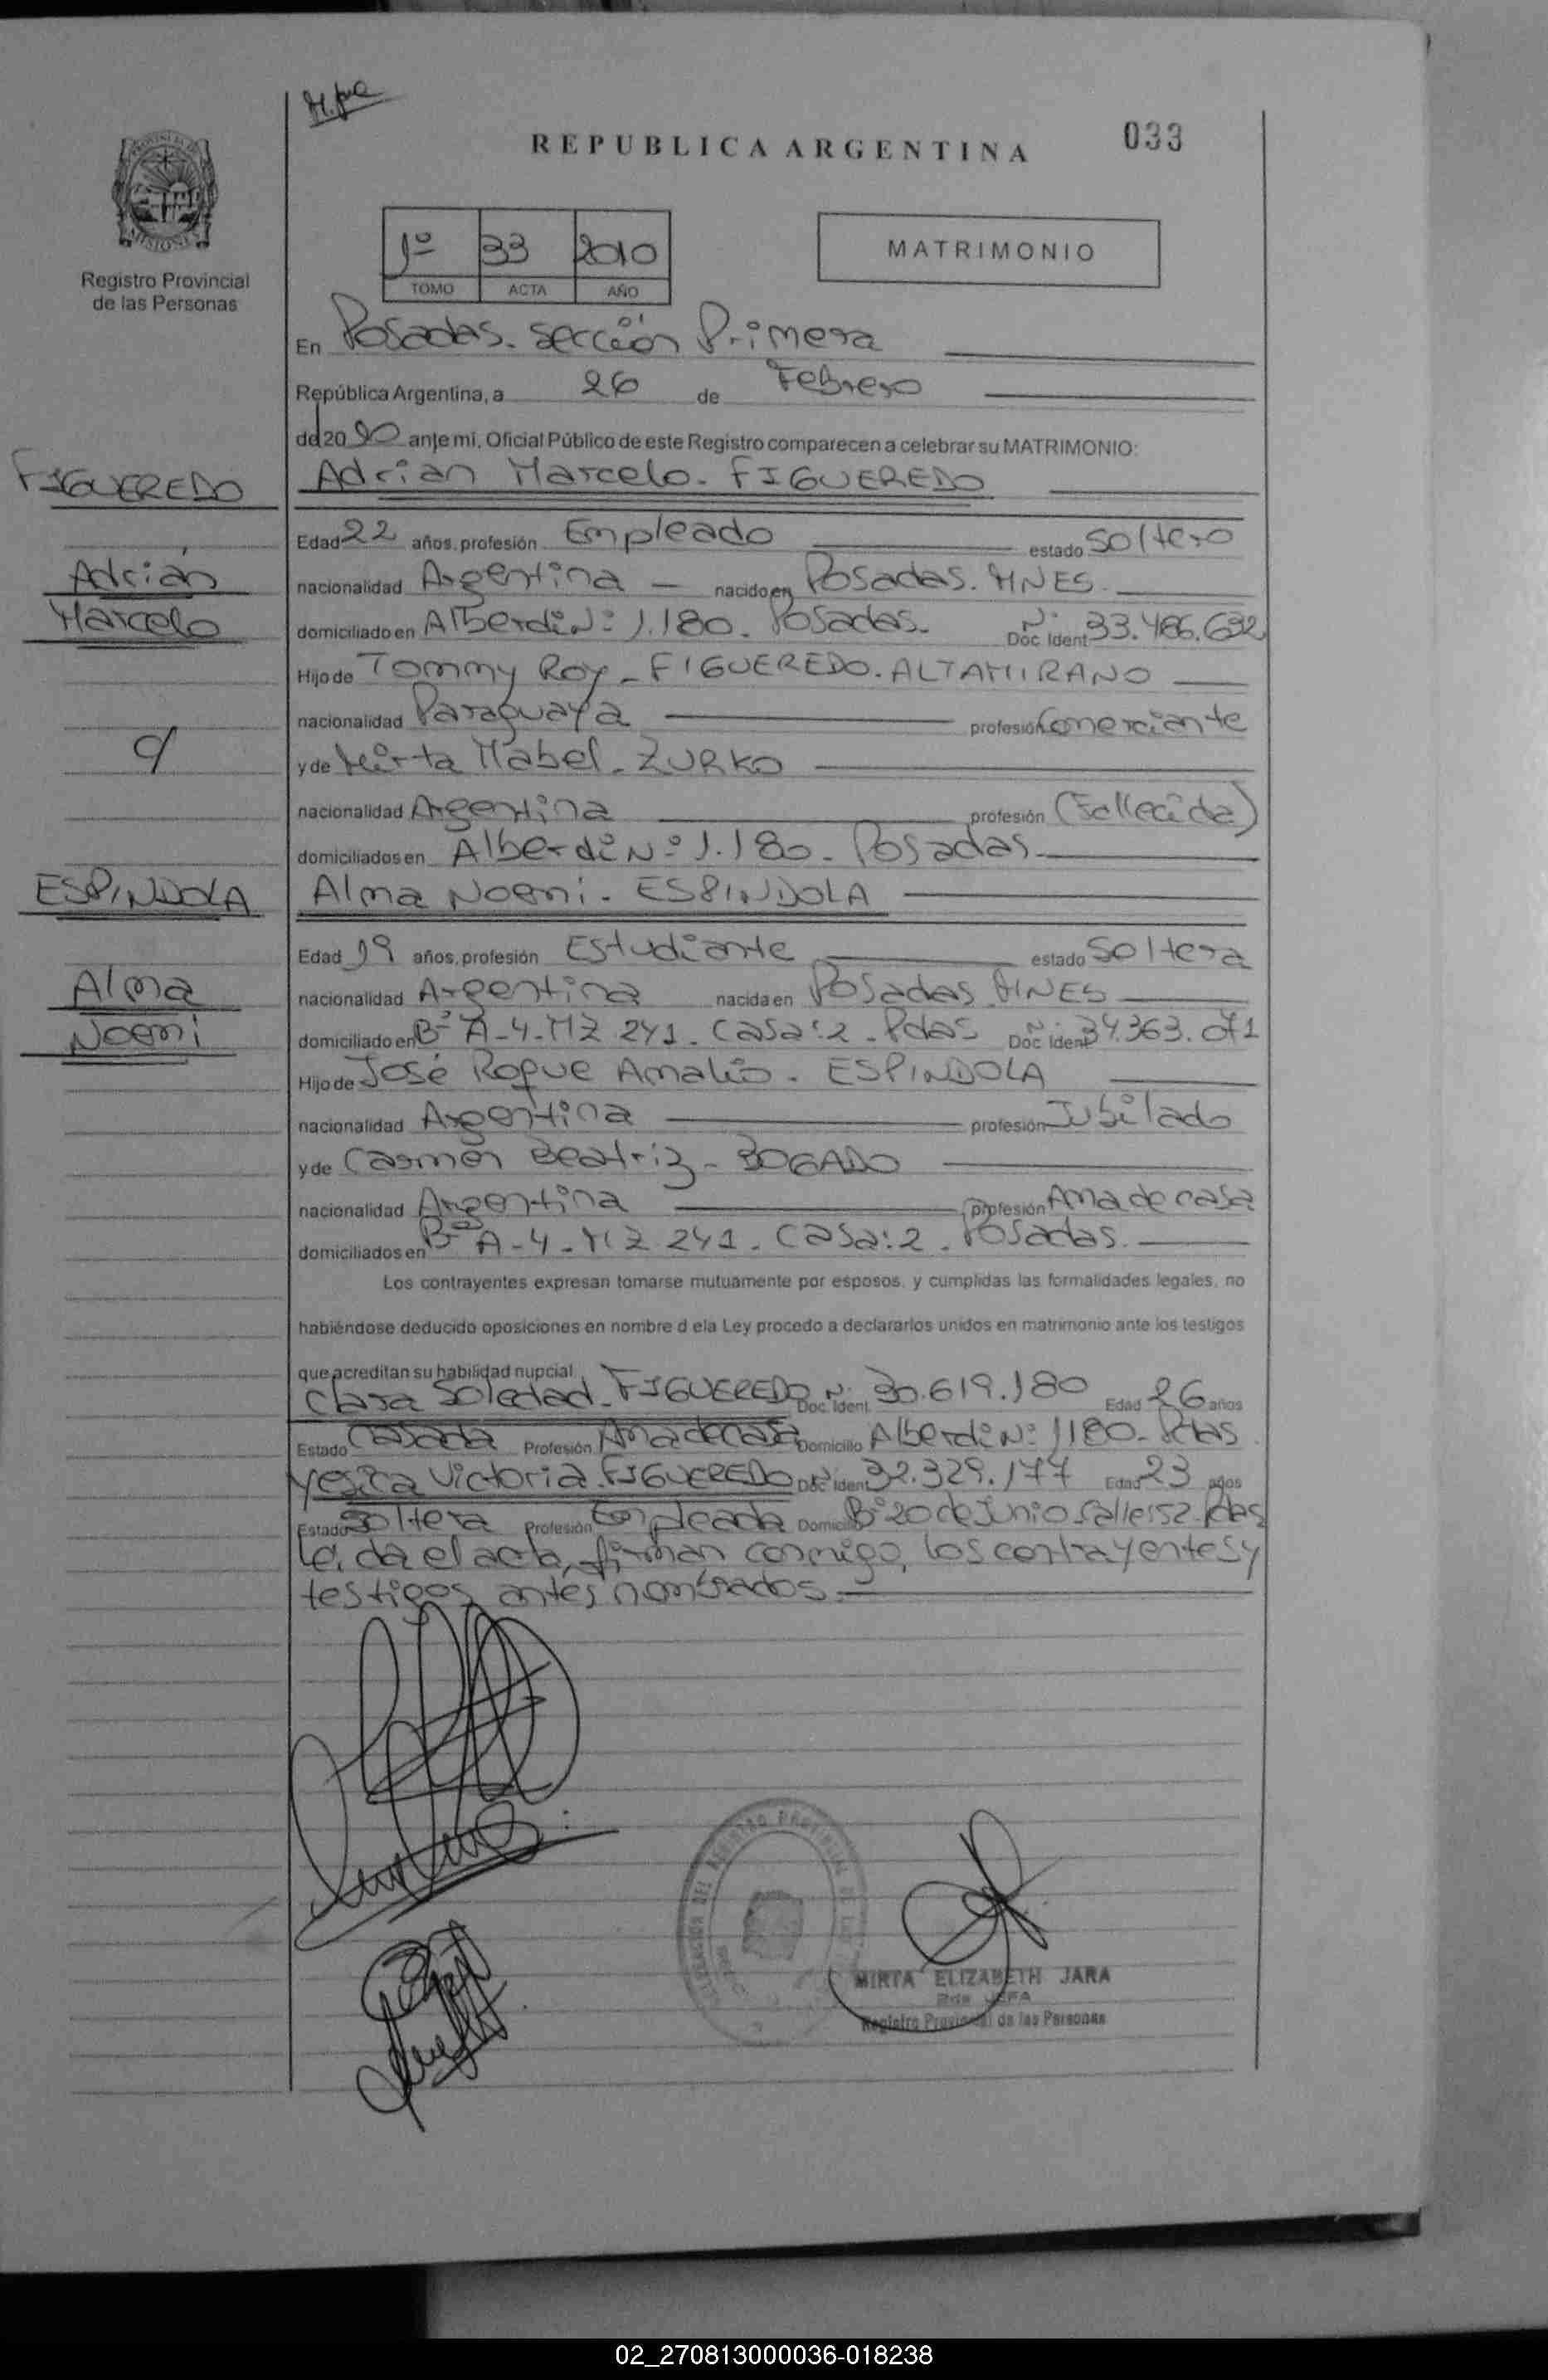 H.pre
REPUBLICA ARGENTINA
033
MISIONES
Registro Provincial
de las Personas
1º 33 2010
TOMO ACTA AÑO
MATRIMONIO
En Posadas. sección Primera
República Argentina, a 26 de Febrero
de 20 10 ante mi, Oficial Público de este Registro comparecen a celebrar su MATRIMONIO:
FIGUEREDO
Adrian Marcelo - FIGUEREDO
Edad 22 años, profesión Empleado estado Soltero
Adrián
nacionalidad Argentina - nacido en Posadas. MNES.
Marcelo
domiciliado en Alberdi Nº 1.180. Posadas. Nº Doc Ident 33.486.692
Hijo de Tommy Roy - FIGUEREDO. ALTAMIRANO
nacionalidad Paraguaya profesión Comerciante
c/
y de Mirta Mabel - ZURKO
nacionalidad Argentina profesión (Fallecida)
domiciliados en Alberdi Nº 1.180 - Posadas
ESPINDOLA
Alma Noemi - ESPINDOLA
Edad 19 años, profesión Estudiante estado Soltera
Alma
nacionalidad Argentina nacida en Posadas MNES
Noemi
domiciliado en Bº A-4-MZ 241. Casa: 2 - Pdas Nº Doc Ident 34.363.071
Hijo de José Roque Amalio - ESPINDOLA
nacionalidad Argentina profesión Jubilado
y de Carmen Beatriz - BOGADO
nacionalidad Argentina profesión Ama de casa
domiciliados en Bº A-4-MZ 241. Casa: 2. Posadas.
Los contrayentes expresan tomarse mutuamente por esposos, y cumplidas las formalidades legales, no
habiéndose deducido oposiciones en nombre d ela Ley procedo a declararlos unidos en matrimonio ante los testigos
que acreditan su habilidad nupcial
Clara Soledad - FIGUEREDO Doc. Nº Ident. 30.619.180 Edad 26 años
Estado Casada Profesión Ama de casa Domicilio Alberdi Nº 1180 - Pdas
Yesica Victoria. FIGUEREDO Doc Nº Ident 32.329.177 Edad 23 años
Estado Soltera Profesión Empleada Domicilio Bº 20 de Junio Calle: 52. Pdas
Leída el acta, firman conmigo, los contrayentes y
testigos antes nombrados.
MIRTA ELIZABETH JARA
2da JEFA
Registro Provincial de las Personas
02_270813000036-018238